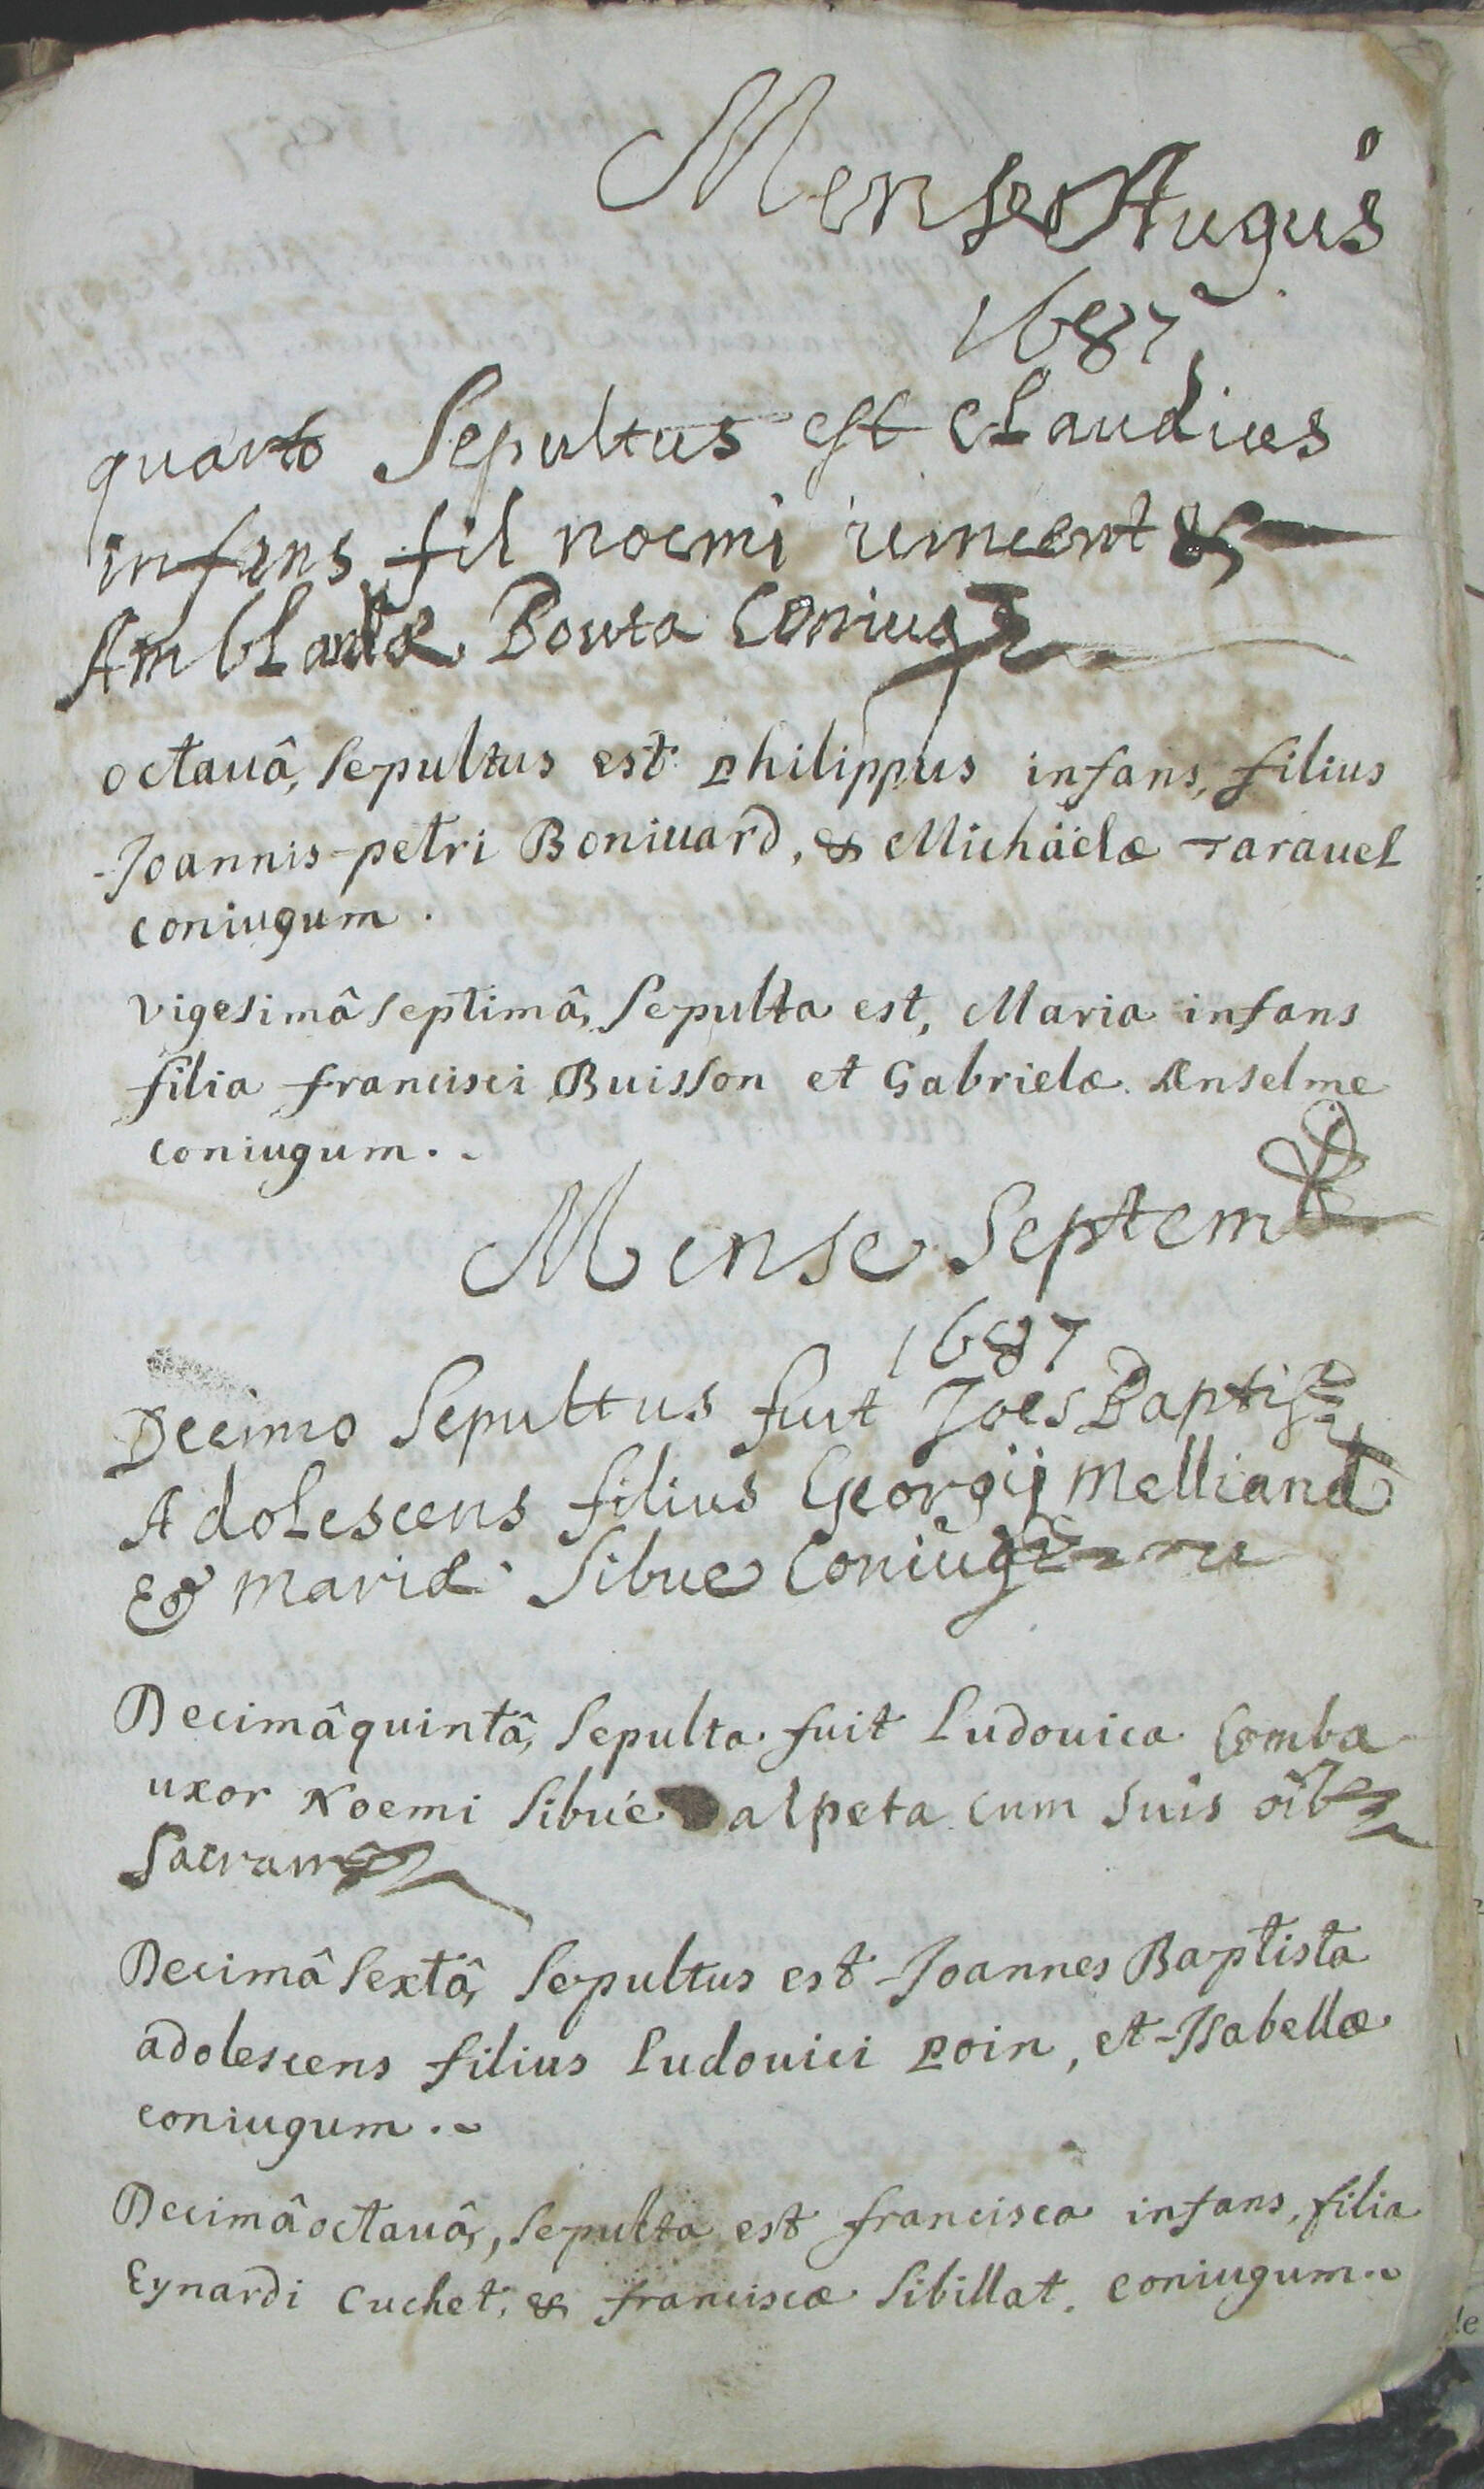 Mense Augus
1687
quarto Sepultus est Claudius
infans fil noemi &
Amblardæ Bouta Coniug
octauâ, Sepultus est philippus infans, filius
Joannis-petri Boniuard, & Michäelæ Tarauel
coniugum.
vigesimâ septimâ, Sepulta est, Maria infans
filia francisci Buisson et Gabrielæ Anselme
coniugum..
Mense Septemb
1687
Decimo Sepultus fuit Joes Baptista
Adolescens filius Georgij Melliand
& Mariæ Sibue Coniug
Decimâ quintâ, Sepulta fuit Ludouica Comba
uxor Noemi Sibué alpeta cum suis oib
Sacram
Decimâ Sextâ, Sepultus est Joannes Baptista
adolescens filius Ludouici Poin, et Isabellæ
coniugum..
Decimâ octauâ, Sepulta est francisca infans, filia
Eynardi Cuchet, & franciscæ Sibillat. coniugum..